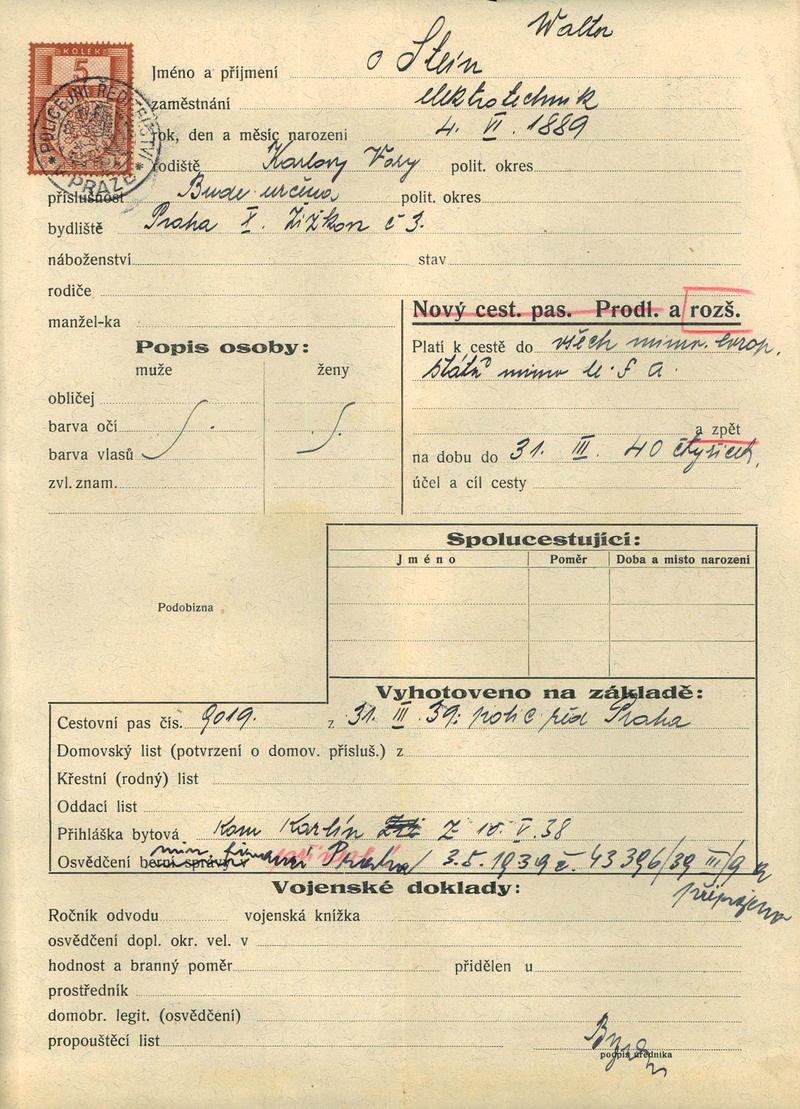 Walter
KOLEK
5
POLICEJNÍ ŘEDITELSTVÍ
PRAZE
Jméno a příjmení Stein
zaměstnání elektrotechnik
rok, den a měsíc narození 4. VI. 1889
rodiště Karlovy Vary polit. okres
příslušnost Bude určena polit. okres
bydliště Praha X. Žižkov č 3.
náboženství stav
rodiče
manžel-ka
Nový cest. pas. Prodl. a rozš.
Platí k cestě do všech mimo. evrop.
států mimo U. S A.
a zpět
na dobu do 31. III. 40 čtyřicet.
účel a cíl cesty
Popis osoby:
muže ženy
obličej
barva očí
barva vlasů
zvl. znam.
Podobizna
Spolucestující:
Jméno Poměr Doba a místo narození
Vyhotoveno na základě:
Cestovní pas čís. 9019. z 31. III. 39. polic. řed Praha
Domovský list (potvrzení o domov. přísluš.) z
Křestní (rodný) list
Oddací list
Přihláška bytová Kom Karlín Z 10. V. 38
Osvědčení berní správy min. financí Praha 3.5.1939 č. 43396/39 III/9
připojeno
Vojenské doklady:
Ročník odvodu vojenská knížka
osvědčení dopl. okr. vel. v
hodnost a branný poměr přidělen u
prostředník
domobr. legit. (osvědčení)
propouštěcí list
podpis úředníka